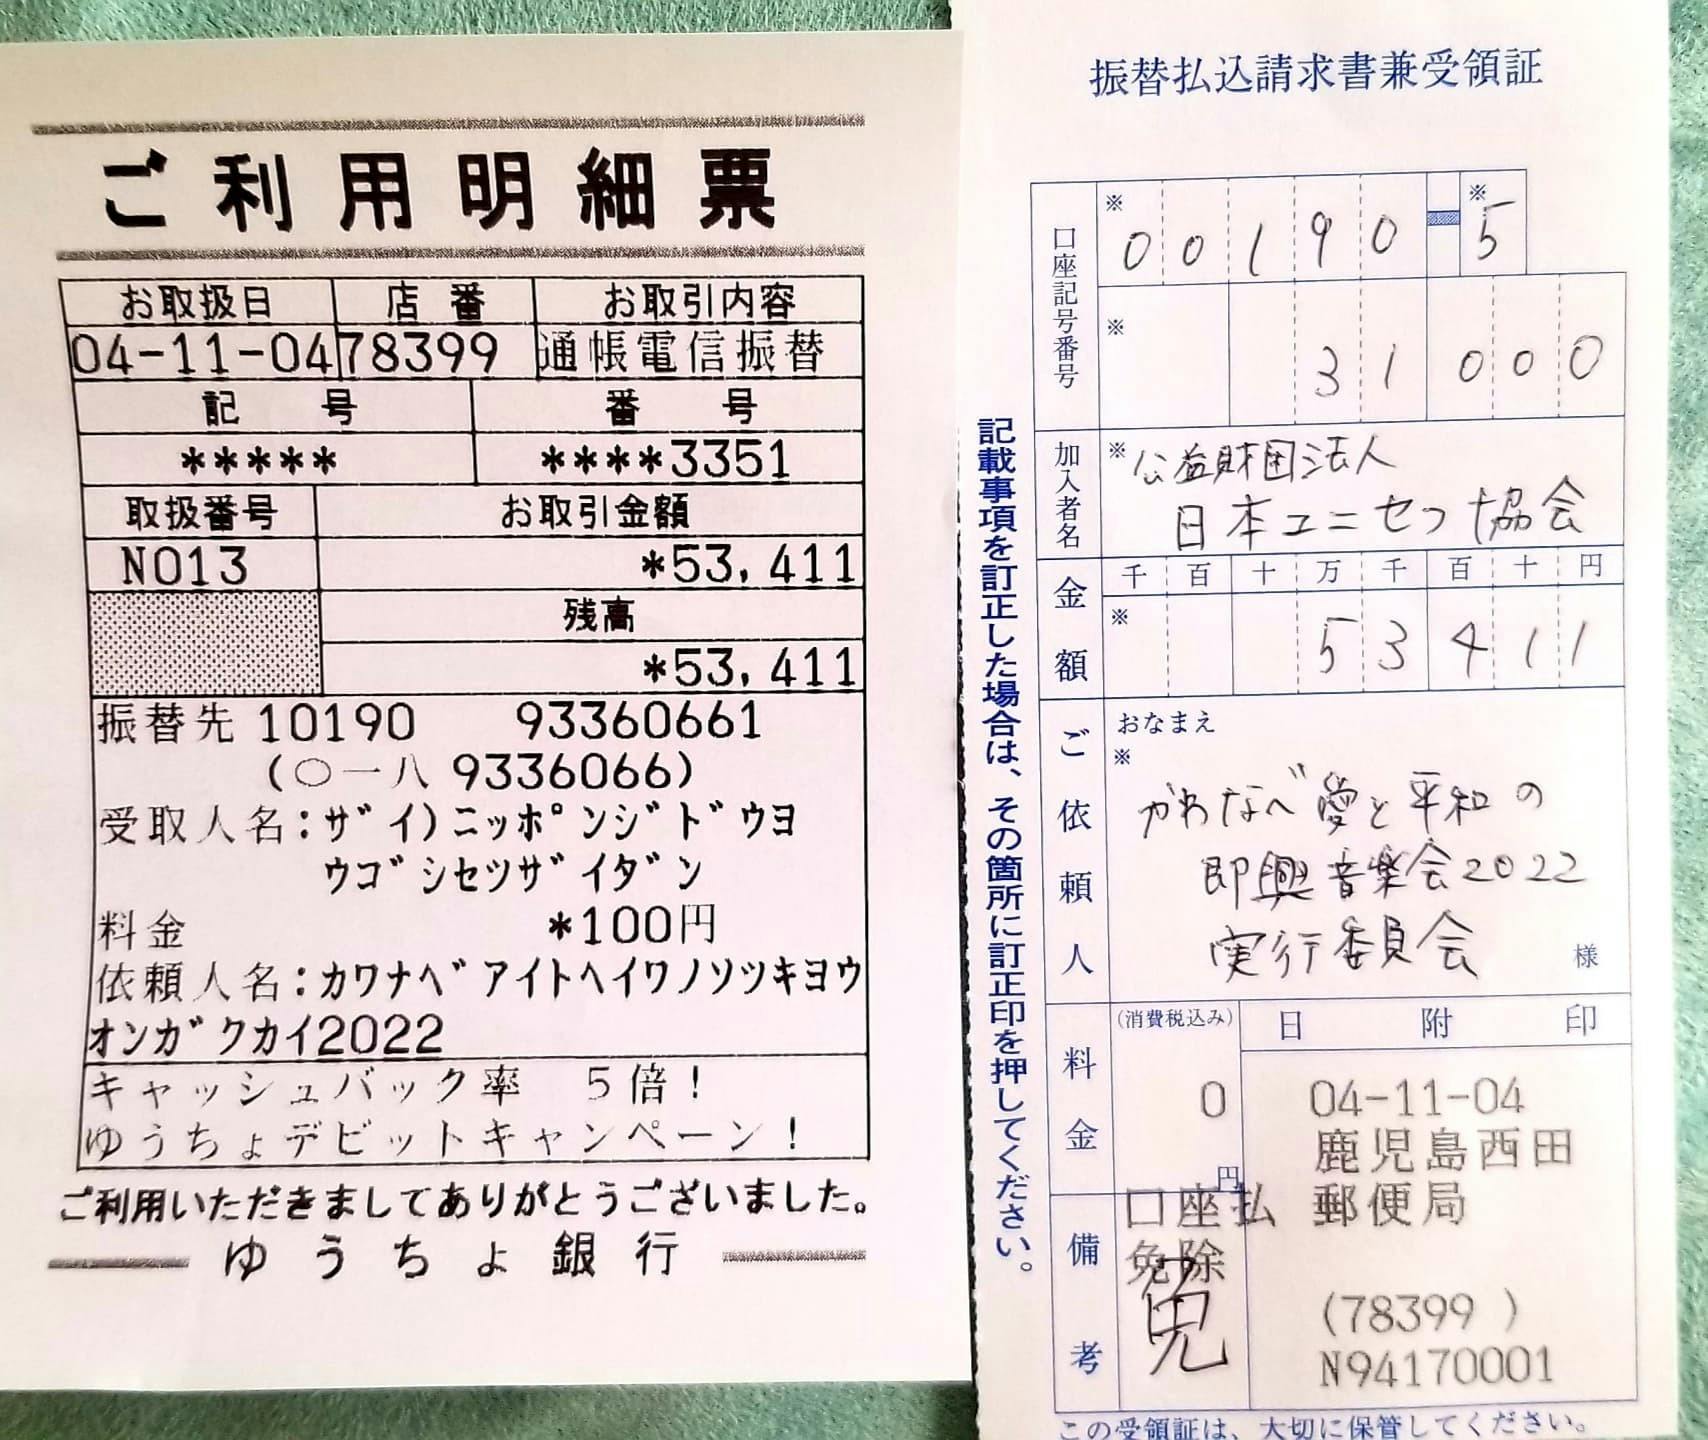 ご利用明細票
お取扱日 店番 お取引内容
04-11-04 78399 通帳電信振替
記号 番号
***** ****3351
取扱番号 お取引金額
N013 *53,411
残高
*53,411
振替先 10190 93360661
(〇一八 9336066)
受取人名:ザイ)ニッポンジドウヨ
ウゴシセツザイダン
料金 *100円
依頼人名:カワナベアイトヘイワノソツキヨウ
オンガクカイ2022
キャッシュバック率 5倍!
ゆうちょデビットキャンペーン!
ご利用いただきましてありがとうございました。
ゆうちょ銀行
振替払込請求書兼受領証
口座記号番号
※ 00190 ※ 5
※ 31000
加入者名
※ 公益財団法人
日本ユニセフ協会
金額
千 百 十 万 千 百 十 円
※ 53411
ご依頼人
おなまえ
※
かわなべ愛と平和の
即興音楽会2022
実行委員会 様
料金
(消費税込み) 日附印
0
円
04-11-04
鹿児島西田
郵便局
備考
口座払
免除
免
(78399 )
N94170001
記載事項を訂正した場合は、その箇所に訂正印を押してください。
この受領証は、大切に保管してください。